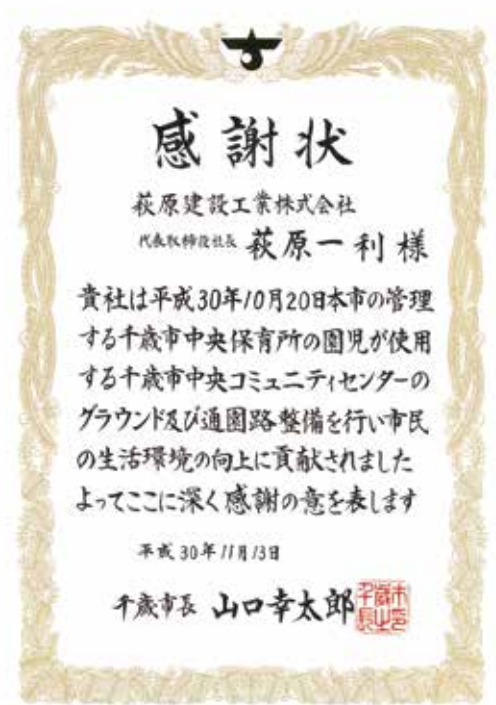 感謝状
萩原建設工業株式会社
代表取締役社長 萩原一利様
貴社は平成30年10月20日本市の管理
する千歳市中央保育所の園児が使用
する千歳市中央コミュニティセンターの
グラウンド及び通園路整備を行い市民
の生活環境の向上に貢献されました
よってここに深く感謝の意を表します
平成30年11月13日
千歳市長 山口幸太郎